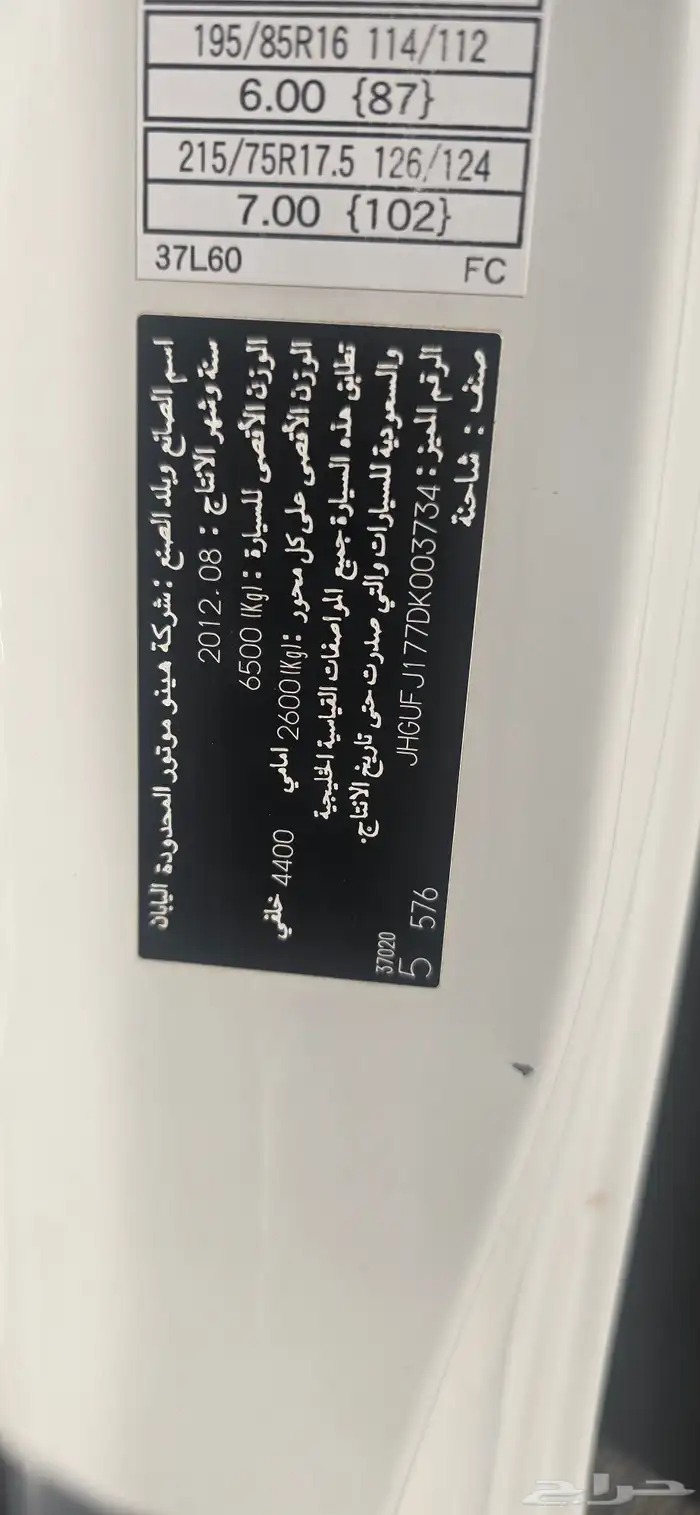 195/85R16 114/112
6.00 {87}
215/75R17.5 126/124
7.00 {102}
37L60 FC
اسم الصانع وبلد الصنع : شركة هينو موتور المحدودة اليابان
سنة وشهر الانتاج : 2012.08
الوزن الأقصى للسيارة : 6500 (Kg)
الوزن الأقصى على كل محور : 2600 (Kg) امامي 4400 خلفي
تطابق هذه السيارة جميع المواصفات القياسية الخليجية
والسعودية للسيارات والتي صدرت حتى تاريخ الانتاج.
الرقم المميز : JHGUFJ177DK003734 576
صنف : شاحنة
37020
5
حراج